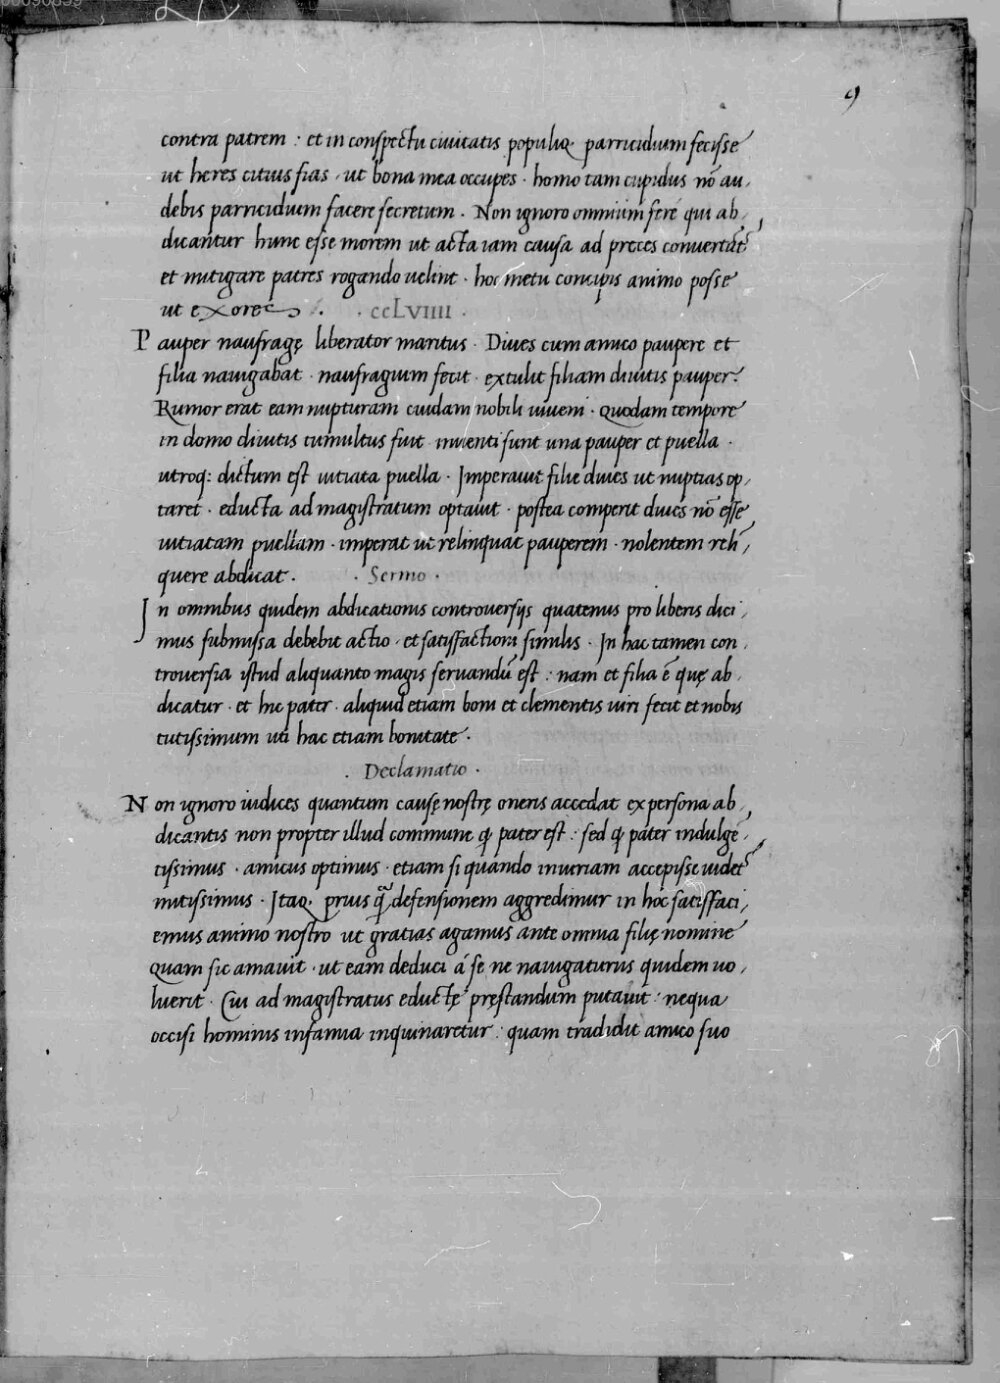 9
contra patrem : et in conspectu ciuitatis populiq. parricidium fecisse
ut heres citius fias . ut bona mea occupes . homo tam cupidus nõ au,
debis parricidium facere secretum . Non ignoro omnium ferè qui ab,
dicantur hunc esse morem ut acta iam causa ad preces conuertãt
et mitigare patres rogando uelint . hoc metu concipis animo posse
ut exores . . ccLVIIII .
Pauper naufragę liberator maritus . Diues cum amico paupere et
filia nauigabat . naufragium fecit . extulit filiam diuitis pauper.
Rumor erat eam nupturam cuidam nobili iuueni . Quodam tempore
in domo diuitis tumultus fuit inuenti sunt una pauper et puella .
utroq: dictum est uitiata puella . Imperauit filie diues ut nuptias op,
taret . educta ad magistratum optauit . postea comperit diues nõ esse
uitiatam puellam . imperat ut relinquat pauperem . nolentem reli,
quere abdicat . . Sermo .
In omnibus quidem abdicationis controuersijs quatenus pro liberis dici,
mus submissa debebit actio . et satisfactioni similis . In hac tamen con,
trouersia istud aliquanto magis seruandũ est : nam et filia ẽ quę ab,
dicatur . et hic pater . aliquid etiam boni et clementis uiri fecit et nobis
tutissimum uti hac etiam bonitate .
. Declamatio .
Non ignoro iudices quantum causę nostrę oneris accedat ex persona ab,
dicantis non propter illud commune ꝙ pater est : sed ꝙ pater indulgẽ,
tissimus . amicus optimus . etiam si quando iniuriam accepisse uidet
mitissimus . Itaq. prius ꝗ̃ defensionem aggredimur in hoc satisfaci,
emus animo nostro ut gratias agamus ante omnia filię nomine
quam sic amauit . ut eam deduci á se ne nauigaturus quidem uo,
luerit . Cui ad magistratus eductę pręstandum putauit : nequa
occisi hominis infamia inquinaretur : quam tradidit amico suo